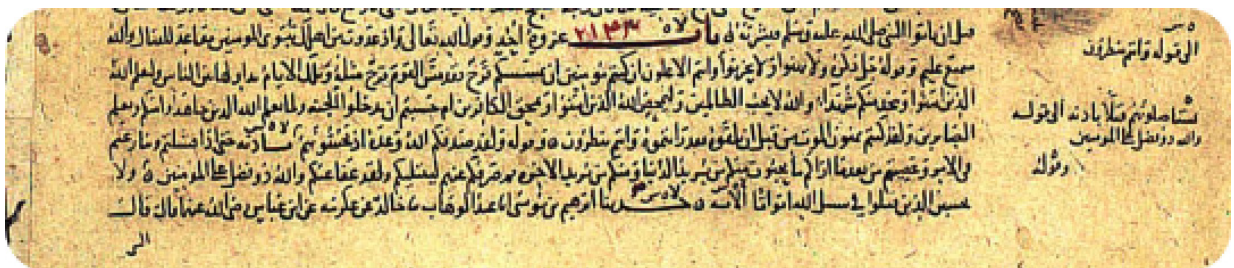 قبل ان ياتوا النبي صلى الله عليه وسلم الى باب غزوة احد وقول الله تعالى واذ غدوت من اهلك تبوئ المومنين مقاعد للقتال والله
سميع عليم وقوله جل ذكره ولا تهنوا ولا تحزنوا وانتم الاعلون ان كنتم مومنين ان يمسسكم قرح فقد مس القوم قرح مثله وتلك الايام نداولها بين الناس وليعلم الله
الذين امنوا ويتخذ منكم شهداء والله لا يحب الظالمين وليمحص الله الذين امنوا ويمحق الكافرين ام حسبتم ان تدخلوا الجنة ولما يعلم الله الذين جاهدوا منكم ويعلم
الصابرين ولقد كنتم تمنون الموت من قبل ان تلقوه فقد رايتموه وانتم تنظرون وقوله ولقد صدقكم الله وعده اذ تحسونهم باذنه حتى اذا فشلتم وتنازعتم
في الامر وعصيتم من بعد ما اراكم ما تحبون منكم من يريد الدنيا ومنكم من يريد الاخرة ثم صرفكم عنهم ليبتليكم ولقد عفا عنكم والله ذو فضل على المومنين ولا
تحسبن الذين قتلوا في سبيل الله امواتا الاية حدثنا ابرهيم بن موسى انا عبد الوهاب نا خالد عن عكرمة عن ابن عباس رضي الله عنهما قال قال
الى قوله وانتم تنظرون
تستاصلونهم قتلا باذنه الى قوله
والله ذو فضل على المومنين
وقوله